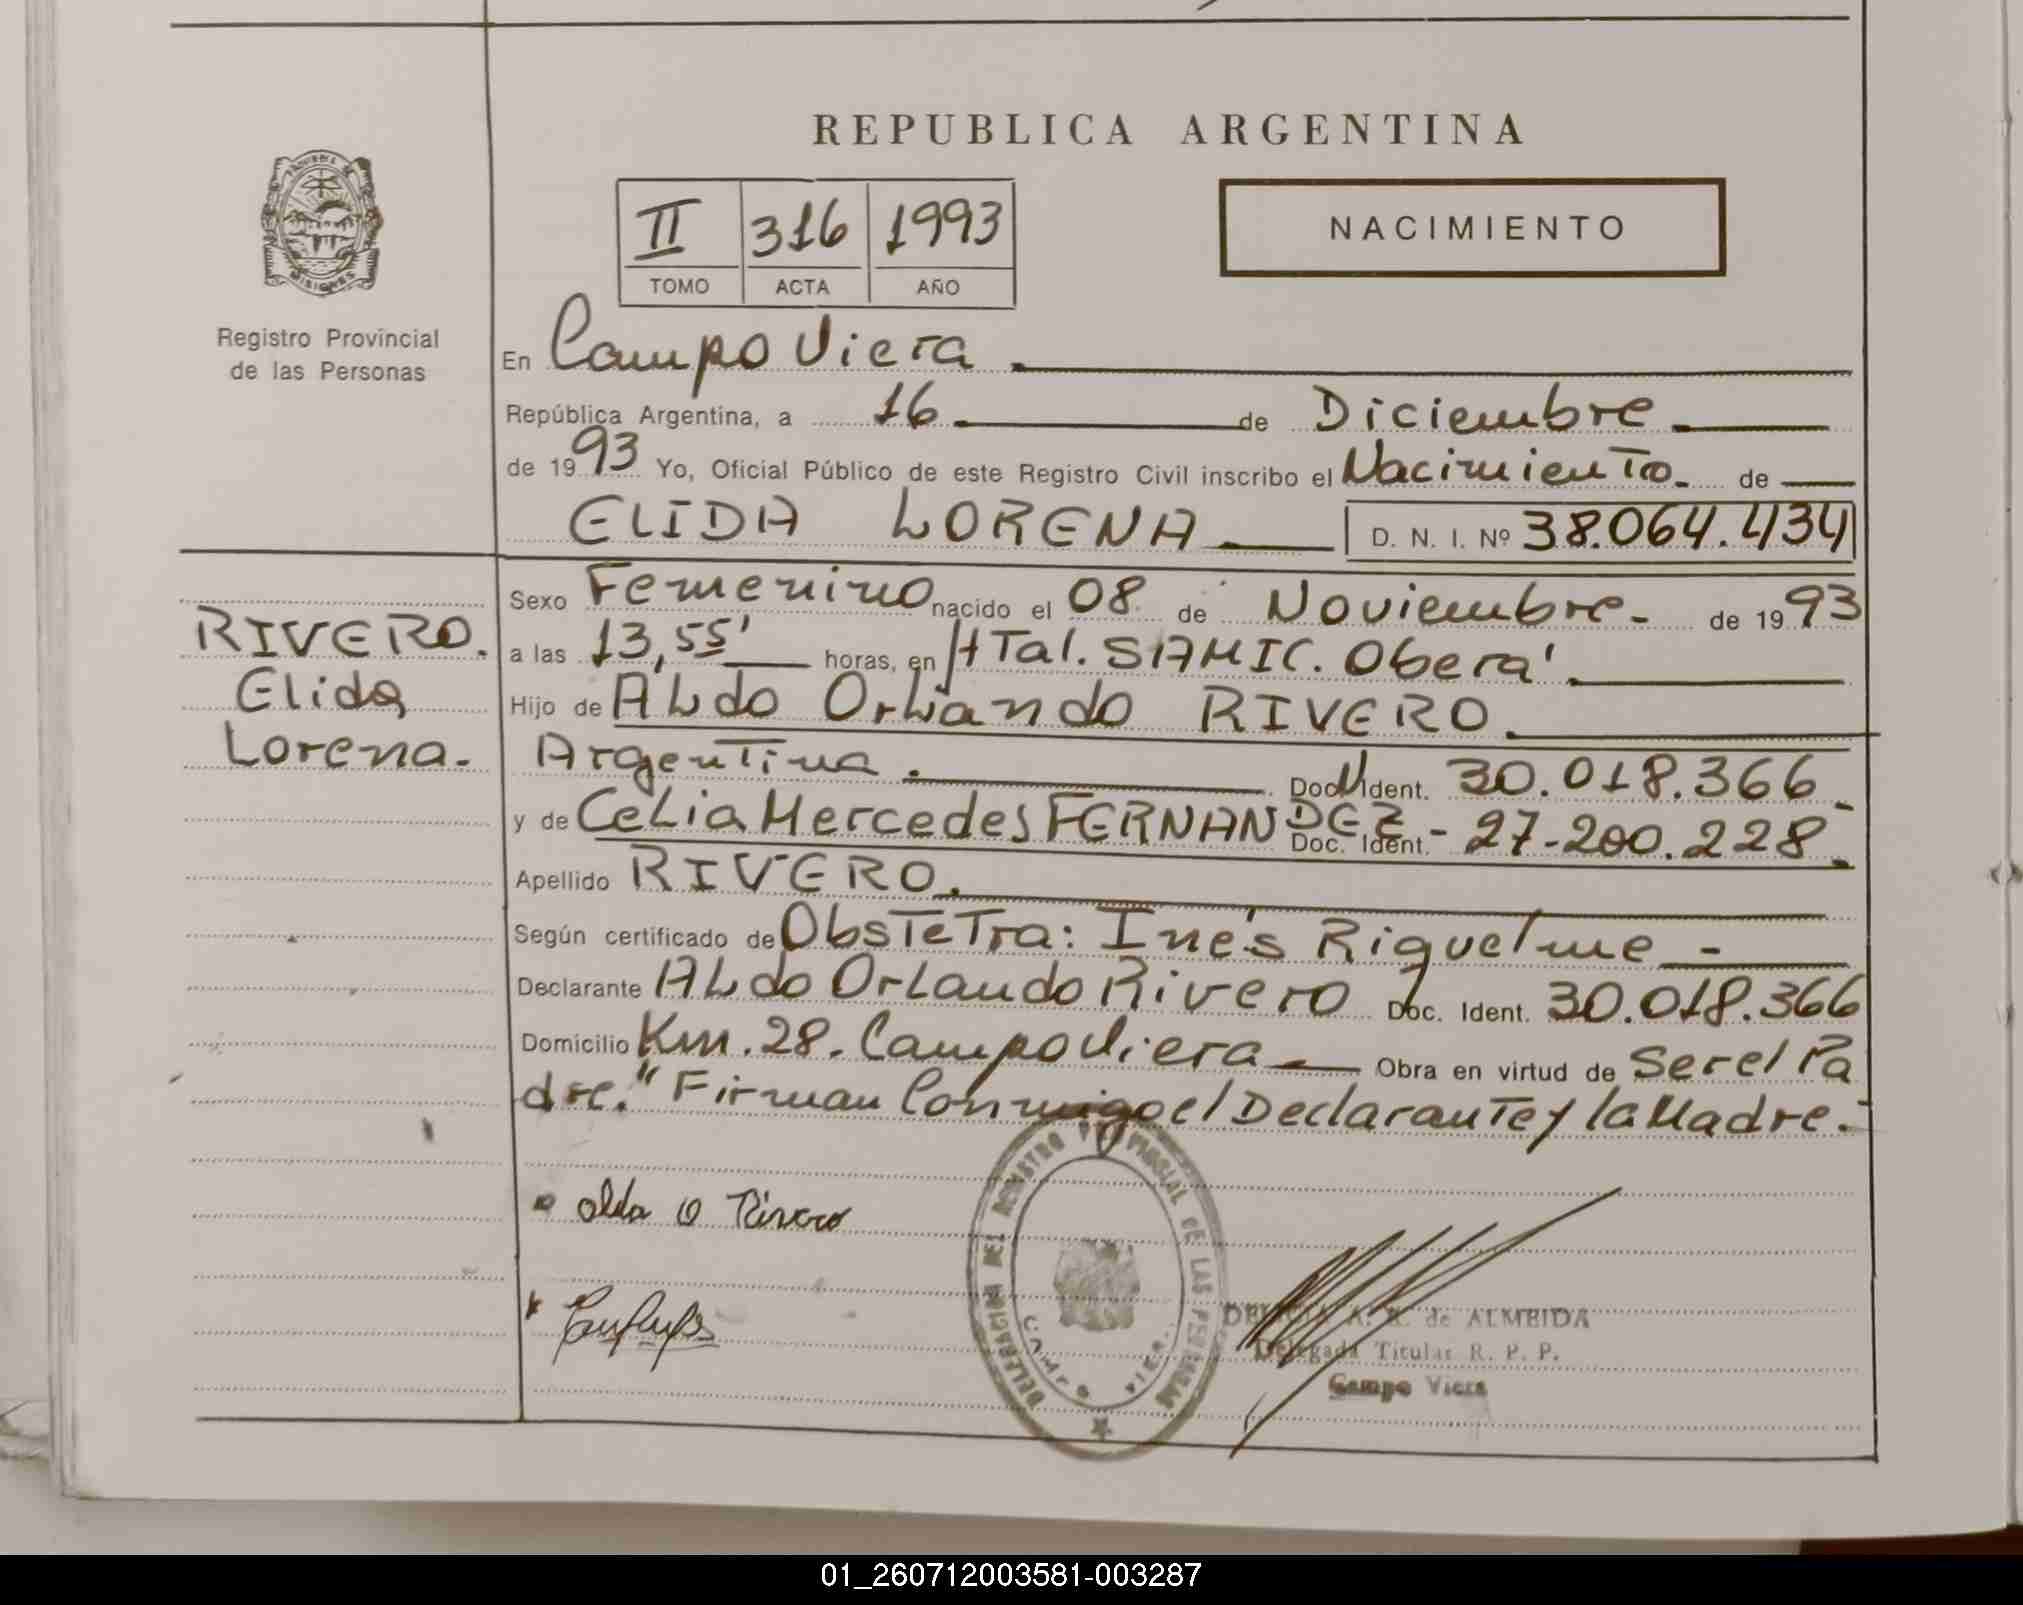 REPUBLICA ARGENTINA
II 316 1993
TOMO ACTA AÑO
NACIMIENTO
MISIONES
Registro Provincial
de las Personas
En Campo Viera.
República Argentina, a 16 de Diciembre
de 1993 Yo, Oficial Público de este Registro Civil inscribo el Nacimiento. de
ELIDA LORENA D. N. I. Nº 38.064.434
RIVERO.
Elida
Lorena.
Sexo Femenino nacido el 08 de Noviembre. de 1993
a las 13,55' horas, en HTal. SAMIC. Oberá.
Hijo de ALdo OrLando RIVERO.
Argentina. Doc. Ident. 30.018.366
y de CeLia Mercedes FERNANDEZ Doc. Ident. - 27-200.228.
Apellido RIVERO.
Según certificado de ObsTeTra: Inés Riquelme -
Declarante ALdo OrLando Rivero Doc. Ident. 30.018.366
Domicilio Km. 28. Campo Viera Obra en virtud de Ser el Pa
dre." Firman Conmigo el DeclaranTe y la Madre.-
Aldo O Rivero
DELEGACION DEL REGISTRO PROVINCIAL DE LAS PERSONAS
CAMPO VIERA
A. R. de ALMEIDA
Delegada Titular R. P. P.
Campo Viera
01_260712003581-003287